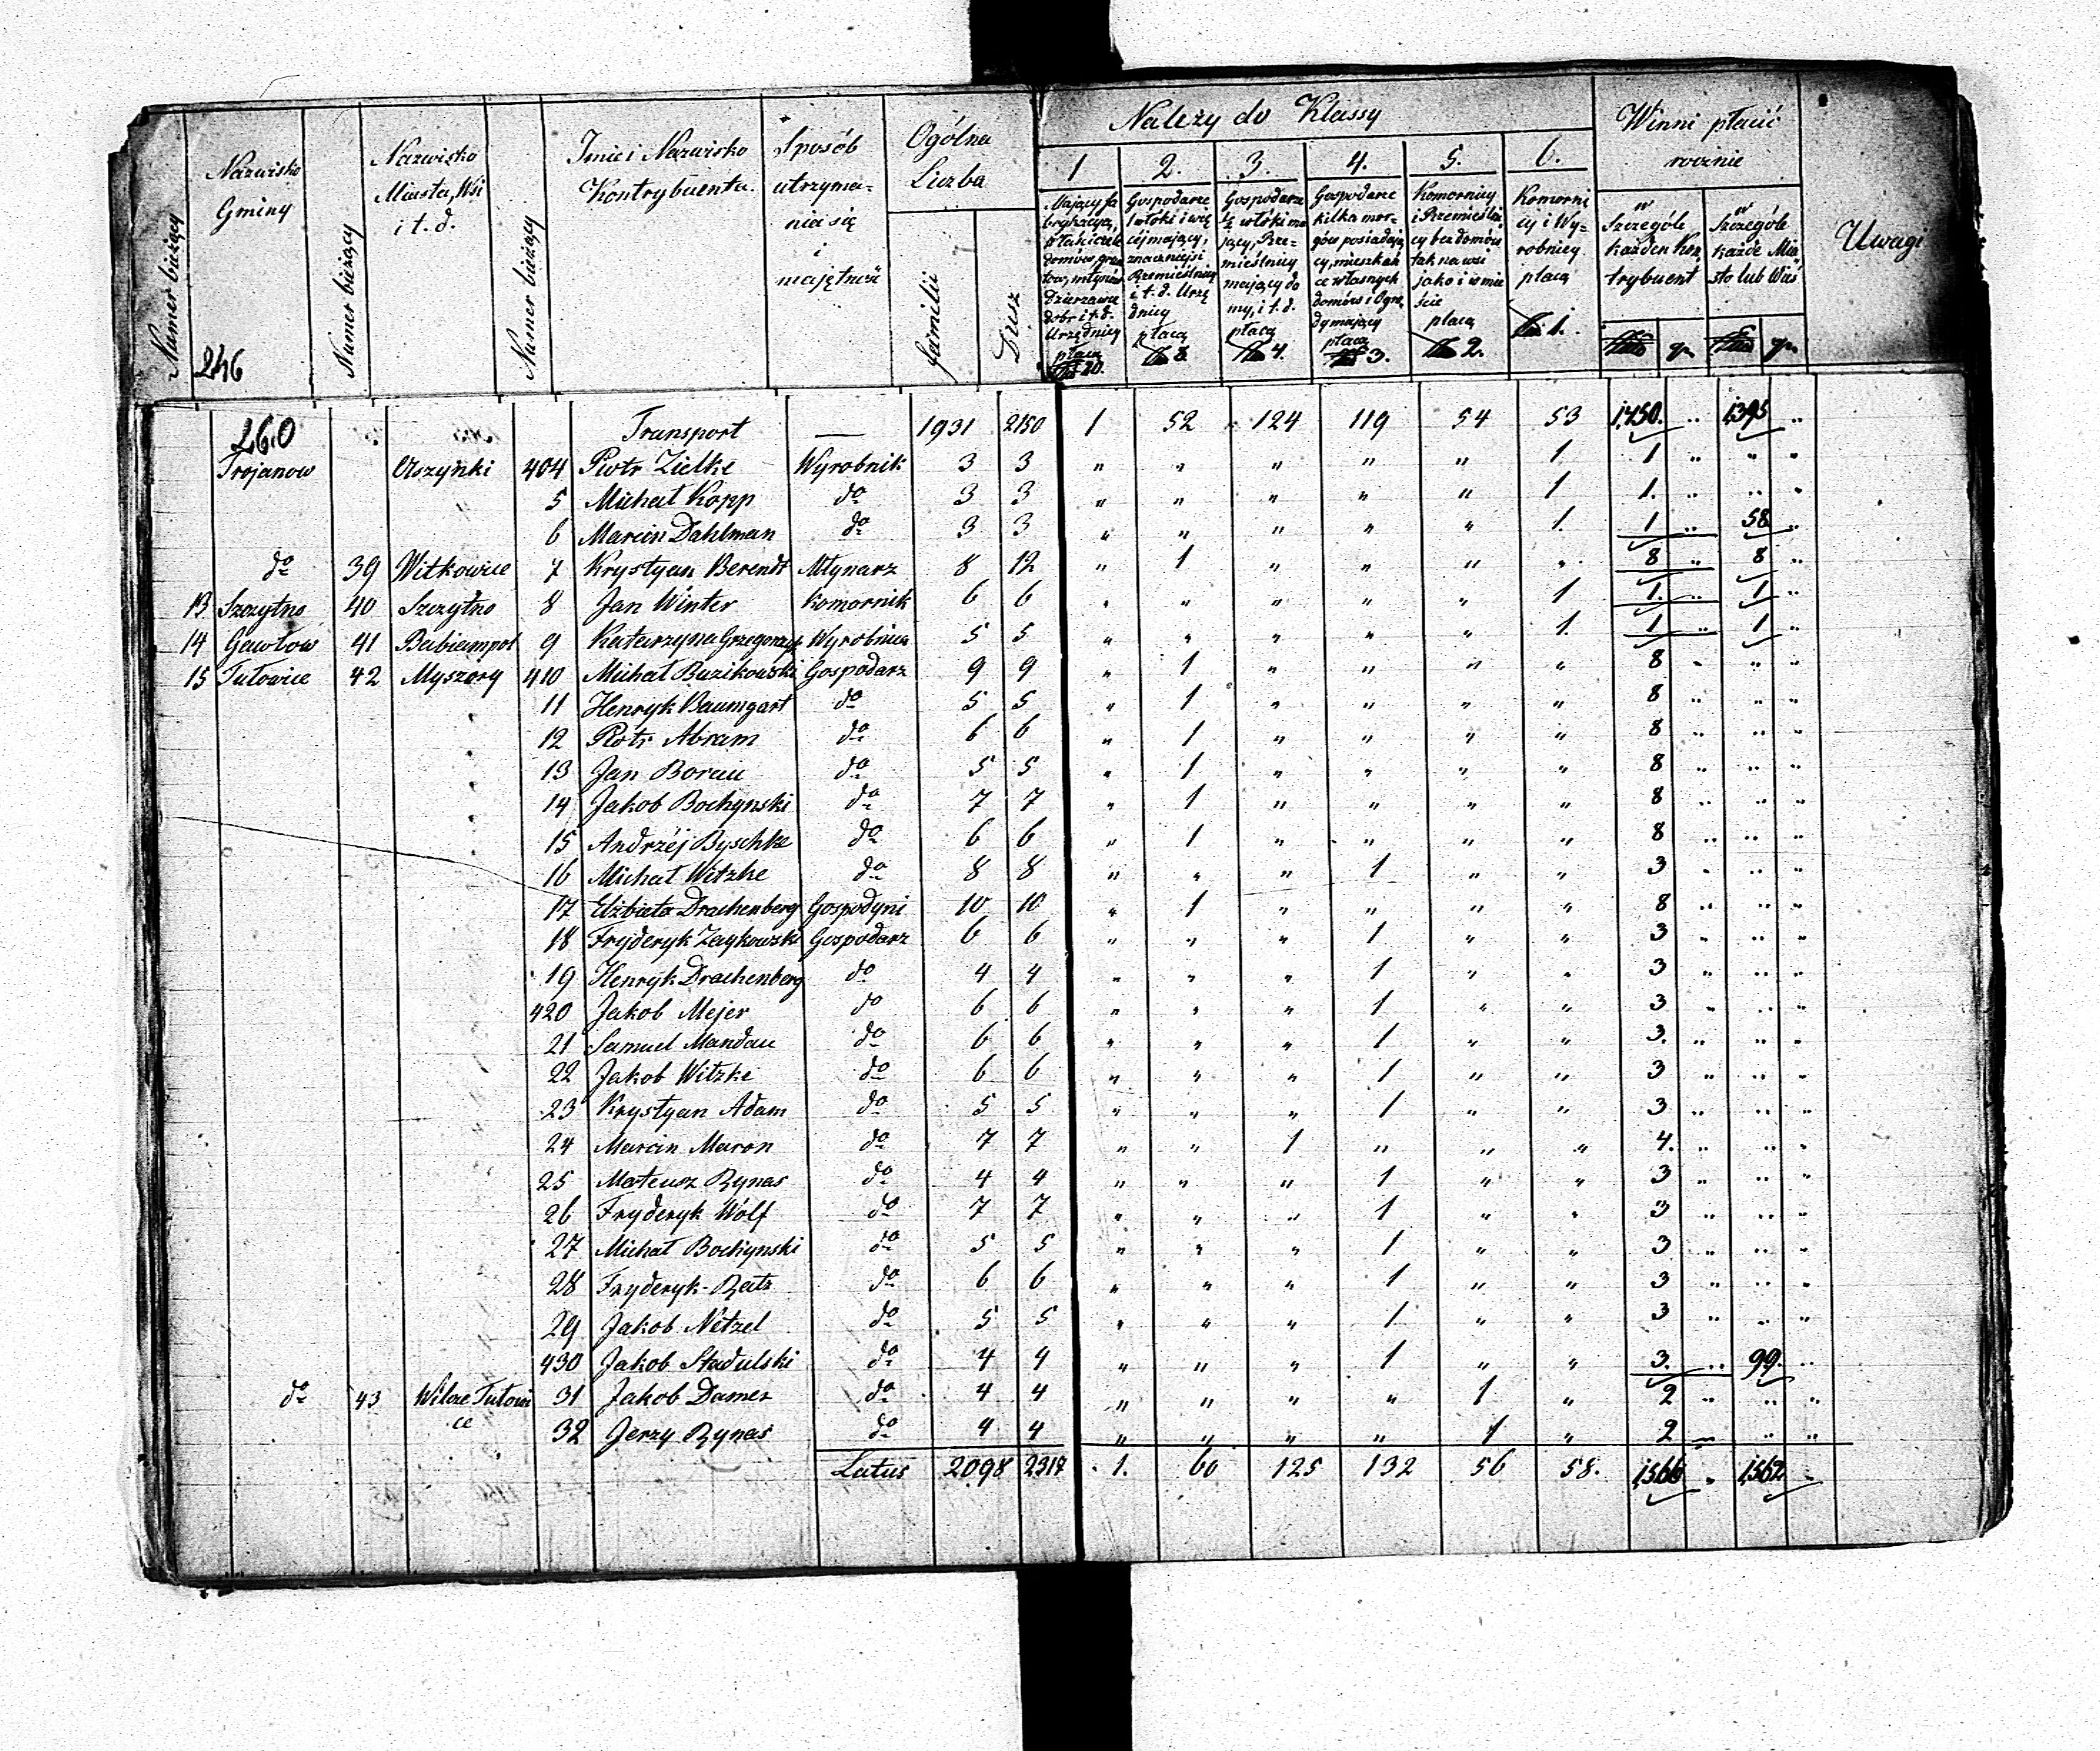 Numer bieżący
Nazwisko Gminy
246
Numer bieżący
Nazwisko Miasta, Wsi i t. d.
Numer bieżący
Imie i Nazwisko Kontrybuenta
Sposób utrzyma= nia się i majętność
Ogólna Liczba
Familii
Dusz
Należy do Klassy
1
płacą 20.
2.
Gospodarze
płacą 8.
3.
Gospodarze
płacą 4.
4.
Gospodarze kilka mor= gów posiadają cy, mieszkań ce własnych domów i Ogro dy mający płacą 3.
5.
Komornicy i Rzemieślni cy bez domów tak na wsi jako i w mie ście płacą 2.
6.
Komorni cy i Wy= robnicy płacą 1.
Winni płacić rocznie
w Szczególe każden Kon trybuent
gr.
w Szczególe każde Mia sto lub Wieś
gr.
Uwagi
260 Transport — 1931 2150 1 52 " 124 119 54 53 1,450. .. 1395 ..
Trojanow Uszynki 404 Piotr Zielke Wyrobnik 3 3 " " " " " 1 1 .. " "
5 Michał Kopp do 3 3 " " " " " 1 1. .. .. "
6 Marcin Dahlman do 3 3 " " " " " 1. 1 .. 58 ..
do 39 Witkowice 7 Krystyan Berendt Młynarz 8 12 " 1 " " " " 8 .. 8 ..
13 Szczytno 40 Szczytno 8 Jan Winter Komornik 6 6 " " " " " 1 1. .. 1 ..
14 Gawłow 41 Babiampol 9 Katarzyna Wyrobnica 5 5 " " " " " 1. 1 .. 1 ..
15 Tułowice 42 Myszory 410 Michał Buzikowski Gospodarz 9 9 " 1 " " " " 8 " .. "
11 Henryk Baumgart do 5 5 " 1 " " " " 8 .. .. "
12 Piotr Abram do 6 6 " 1 " " " " 8 .. .. "
13 Jan Borau do 5 5 " 1 " " " " 8 .. .. ..
14 Jakob Bochynski do 7 7 " 1 " " " " 8 .. .. ..
15 Andrzéj Byschke do 6 6 " 1 " " " " 8 .. .. ..
16 Michał Witzke do 8 8 " " " 1 " " 3 " .. "
17 Elżbieta Drachenberg Gospodyni 10 10 " 1 " " " " 8 .. .. "
18 Fryderyk Zaykowski Gospodarz 6 6 " " " 1 " " 3 " .. "
19 Henryk Drachenberg do 4 4 " " " 1 " " 3 " .. "
420 Jakob Mejer do 6 6 " " " 1 " " 3 " .. "
21 Samuel Mandau do 6 6 " " " 1 " " 3. .. .. "
22 Jakob Witzke do 6 6 " " " 1 " " 3 .. .. "
23 Krystyan Adam do 5 5 " " " 1 " " 3 .. .. ..
24 Marcin Maron do 7 7 " " 1 " " " 4. .. .. "
25 Mateusz Rynas do 4 4 " " " 1 " " 3 .. .. "
26 Fryderyk Wolf do 7 7 " " " 1 " " 3 .. .. "
27 Michał Bochynski do 5 5 " " " 1 " " 3 .. .. "
28 Fryderyk Ratz do 6 6 " " " 1 " " 3 " .. "
29 Jakob Netzel do 5 5 " " " 1 " " 3 .. .. "
430 Jakob Stadulski do 4 4 " " " 1 " " 3. .. 99. ..
do 43 Wilcze Tułowi ce 31 Jakob Damer do 4 4 " " " " 1 " 2 .. .. "
32 Jerzy Rynas do 4 4 " " " " 1 " 2 .. .. "
Latus 2098 2317 1. 60 125 132 56 58. 1,566 " 1,562 "